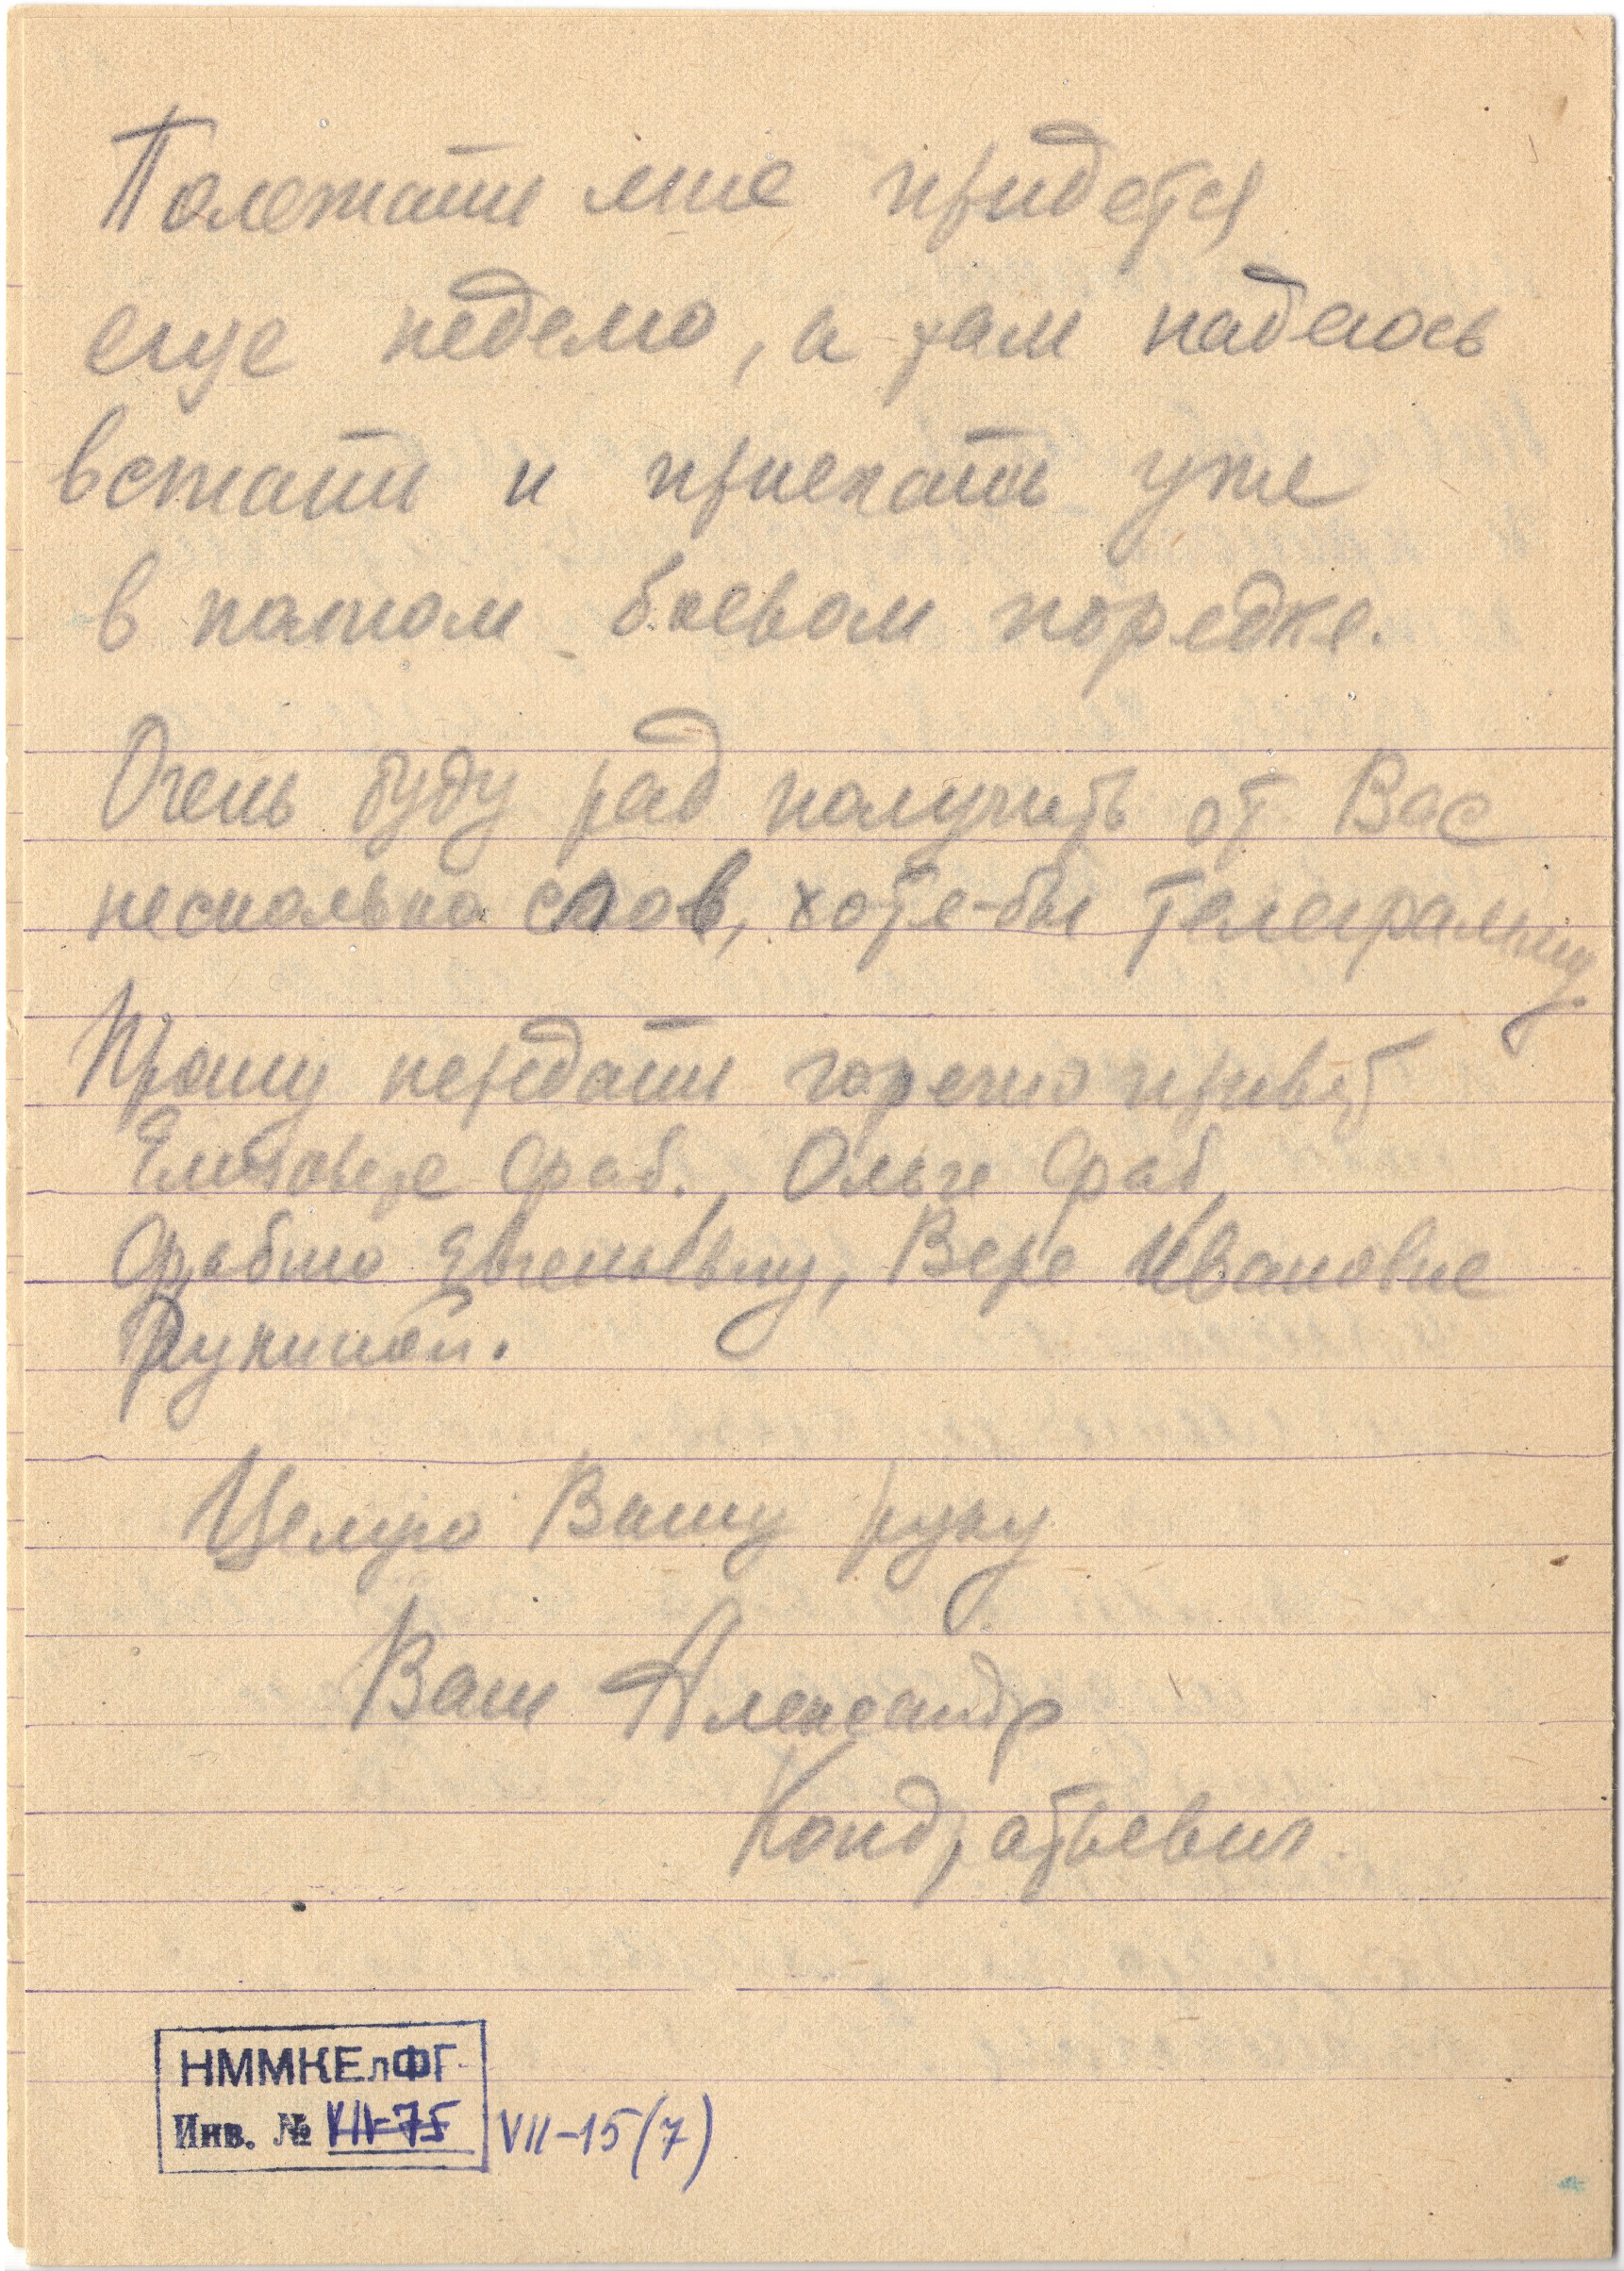 Полежать мне придется
еще неделю, а там надеюсь
встать и приехать уже
в полном боевом поредке.
Очень буду рад получить от Вас
несколько слов, хоте-бы телеграмму.
Прошу передать горечио привет
Фаб., Ольге Фаб,
Евгеньевну, Вере Ивановне
Рукиной.
Целую Вашу руку
Ваш Александр
Кондратьевич
НММКЕЛФГ
Инв. № VII-75 VII-15(7)